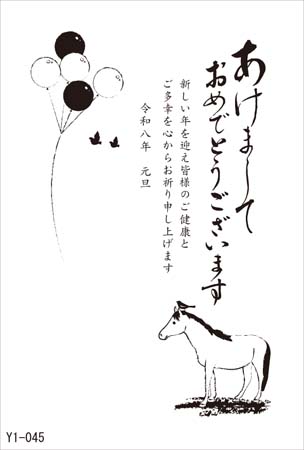 あけまして
おめでとうございます
新しい年を迎え皆様のご健康と
ご多幸を心からお祈り申し上げます
令和八年　元旦
Y1-045